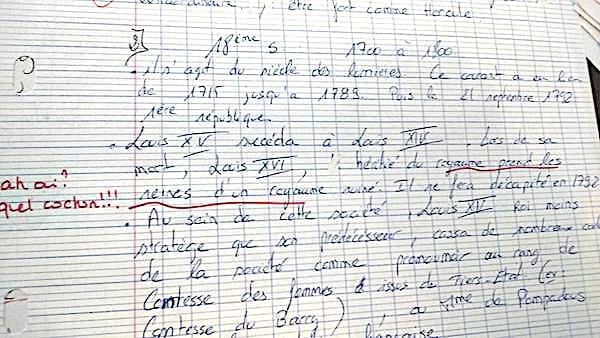 être fort comme Hercule
3]
18ème s 1700 à 1800
• il s'agit du siècle des lumières. Ce
de 1715 jusqu'à 1789. Puis le 21 septembre 1792
1ère république.
• Louis XV succéda à Louis XIV. Lors de sa
mort, Louis XVI, du royaume prend les
ah oui?
reines d'un royaume ruiné. Il se fera décapité en 1792
quel cochon!!!
• Au sein de cette société, Louis XV Roi moins
stratège que son prédecesseur, cassa de nombreux
de la société comme promouvoir au rang de
Comtesse des femmes issues du Tiers-Etat (ex:
Comtesse du Barry), a Mme de Pompadour
française